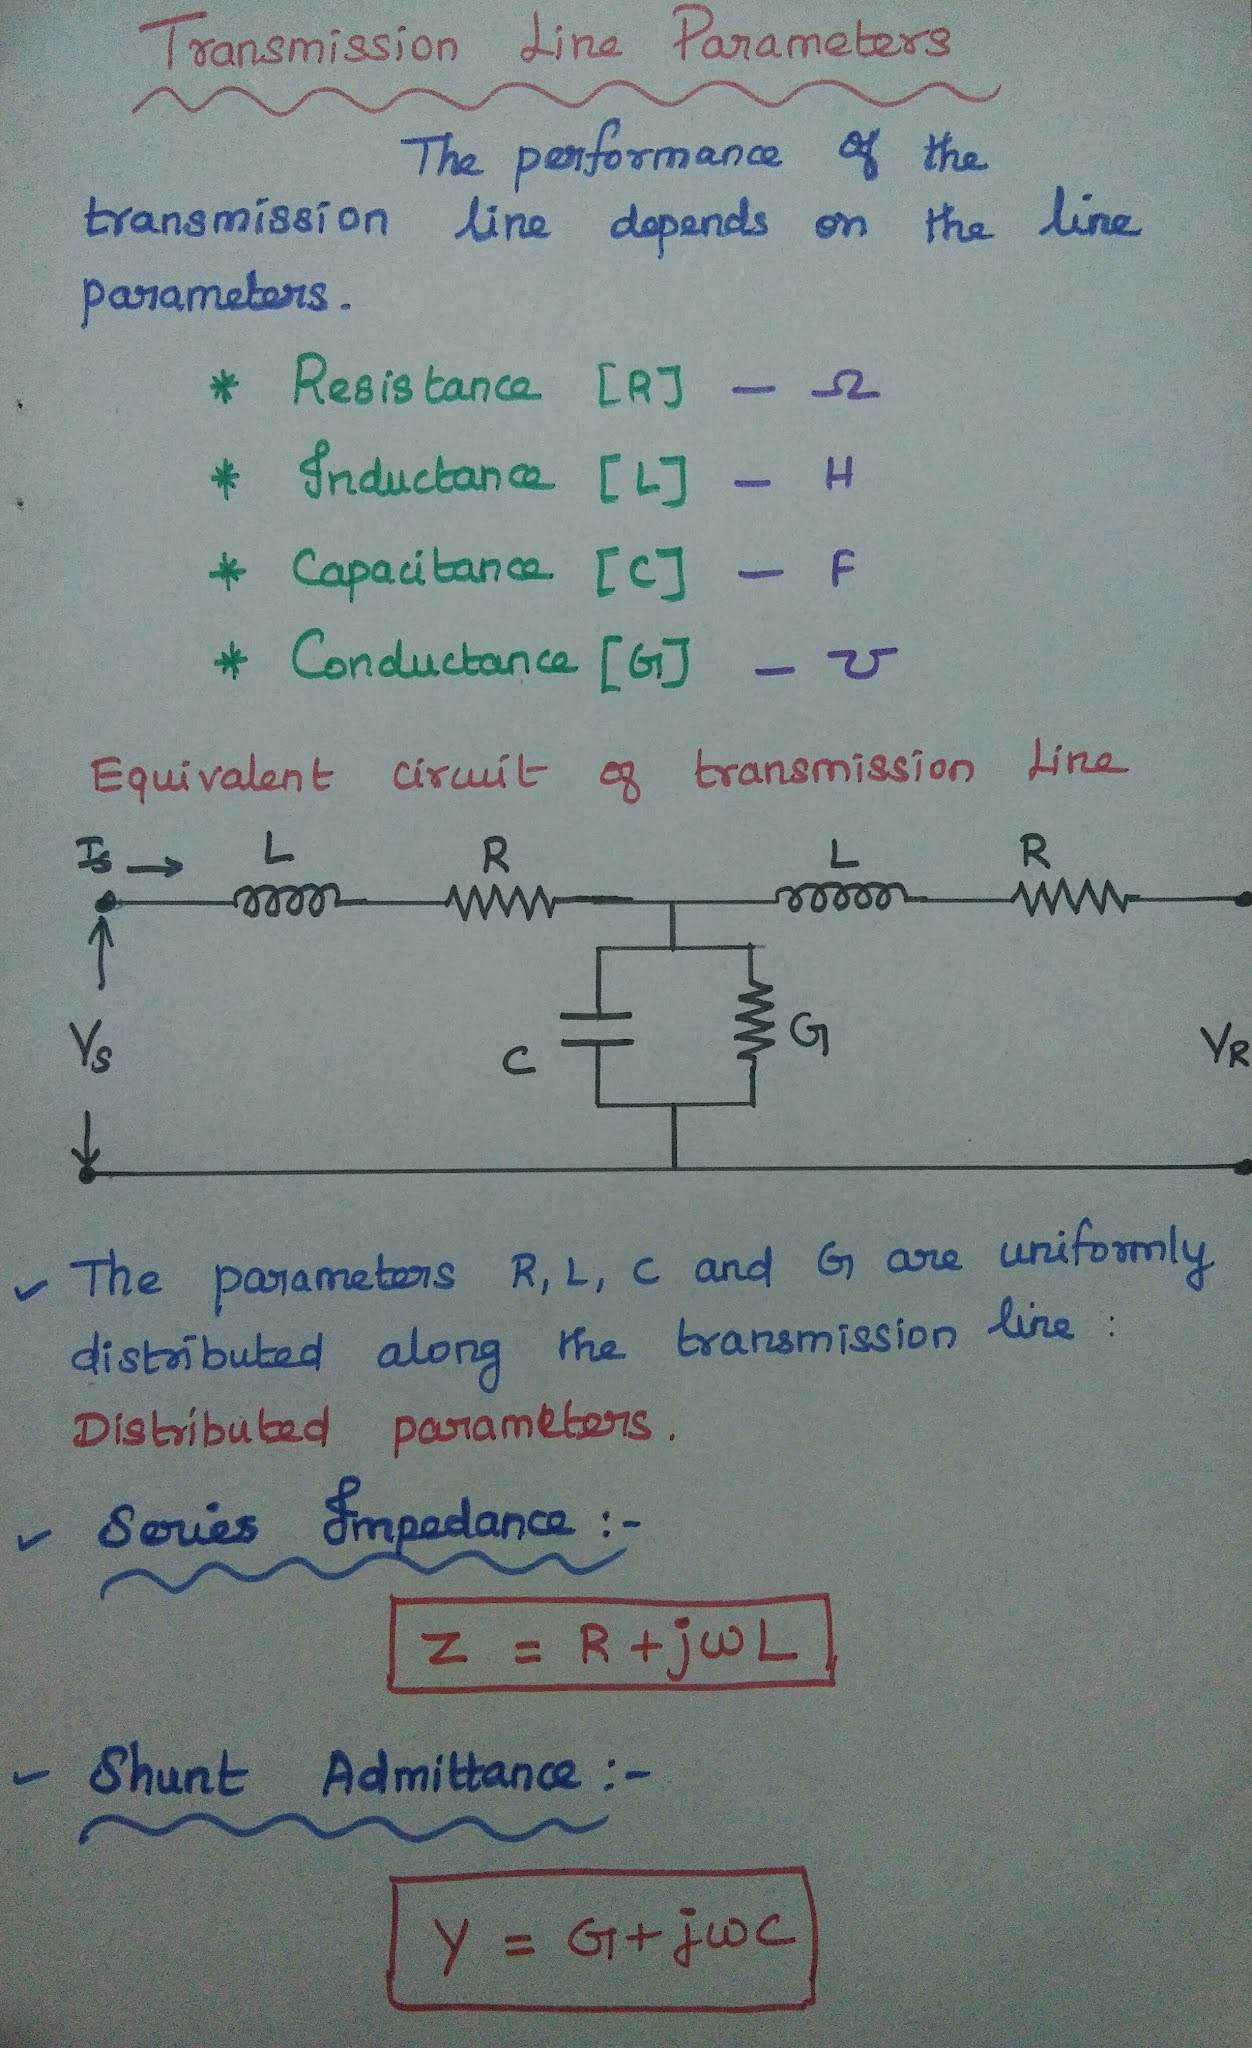 Transmission Line Parameters
The performance of the
transmission line depends on the line
parameters.
* Resistance [R] – Ω
* Inductance [L] – H
* Capacitance [C] – F
* Conductance [G] – ℧
Equivalent circuit of transmission Line
Is → L R L R
C G
Vs VR
✓ The parameters R, L, C and G are uniformly
distributed along the transmission line :
Distributed parameters.
✓ Series Impedance :-
Z = R + jωL
✓ Shunt Admittance :-
Y = G + jωC